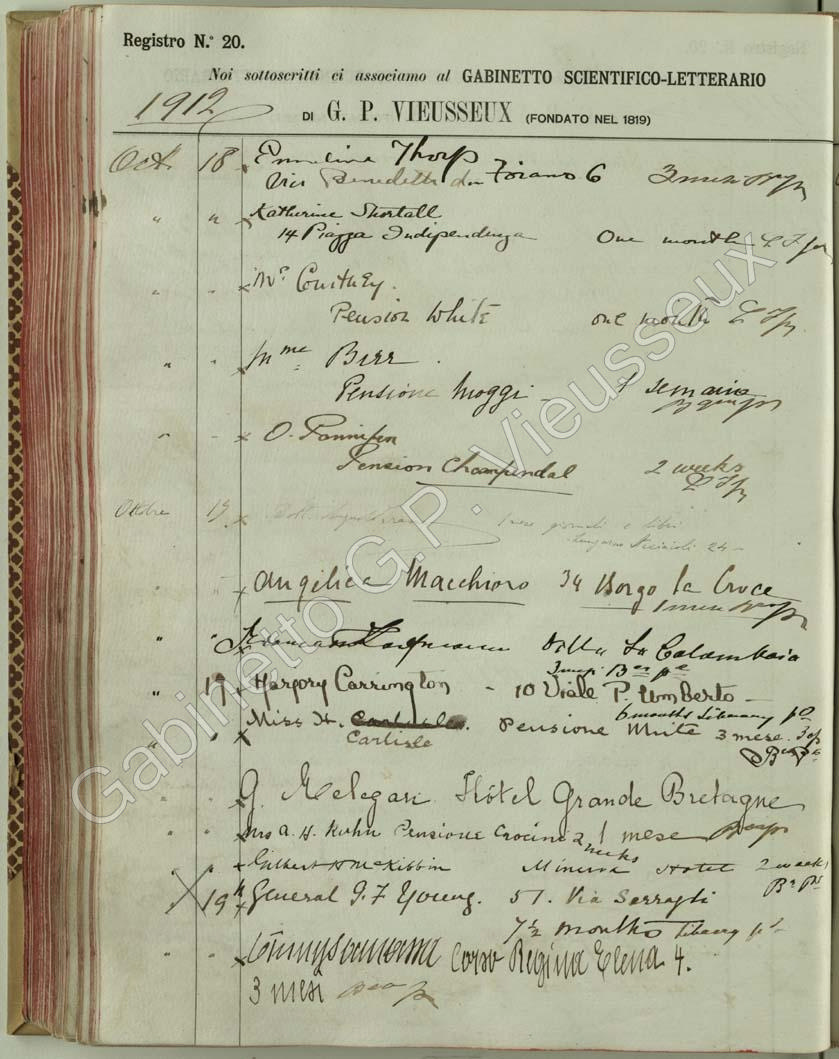 Registro N.° 20.
Noi sottoscritti ci associamo al GABINETTO SCIENTIFICO-LETTERARIO
1912
DI G. P. VIEUSSEUX (FONDATO NEL 1819)
Oct. 18 Emmelina Thorp
Via Benedetto da Foiano 6 3 mesi
" " Katherine Shortall
14 Piazza Indipendenza One month
" " x Mr Courtney.
Pension White one month
" " x Mme Birr.
Pensione Moggi - 1 semaine
" " x O.
Pension Champendal 2 weeks
Ottobre 19. x Dott. 1 mese giornali e libri
Lungarno Acciaioli 24 -
" " x Angelica Macchioro 34 Borgo la Croce
1 mese
" " x Villa La Colombaia
3 mesi
" 19 x Margory Carrington - 10 Viale P. Umberto -
6 months library pd
Miss H. Carlisle. Pensione White 3 mese.
" x Carlisle
" " x G. Melegari Hôtel Grande Bretagne
" " x Mrs A. H. Kuhn Pensione Crocini 1 mese
weeks
" " x Gilbert H McKibbin Minerva Hotel 2 weeks
X 19 " x General G. F. Young. 51. Via Serragli
7½ months library pd
" " x Corso Regina Elena 4.
3 mesi
Gabinetto G.P. Vieusseux